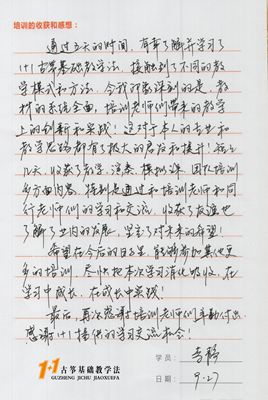 培训的收获和感想：
通过五天的时间，有幸了解并学习了
1+1古筝基础教学法，接触到了不同的教
学模式和方法，令我印象深刻的是，教
材的系统全面，培训老师们带来的教学
上的创新和实践！这对于本人的专业和
教学思路都有了极大的启发和提升！这
几天，收获了教学、演奏、模拟课、团队培训
多方面内容，特别是通过和培训老师和同
行老师们的学习和交流，收获了友谊也
了解了业内的发展，坚定了对未来的希望！
希望在今后的日子里，能够参加其他更
多的培训，尽快把本次学习消化吸收，在
学习中成长，在成长中实践！
最后，再次感谢培训老师们辛勤付出，
感谢1+1提供的学习交流机会！
学员：
1+1 古筝基础教学法
GUZHENG JICHU JIAOXUEFA
日期：9.27